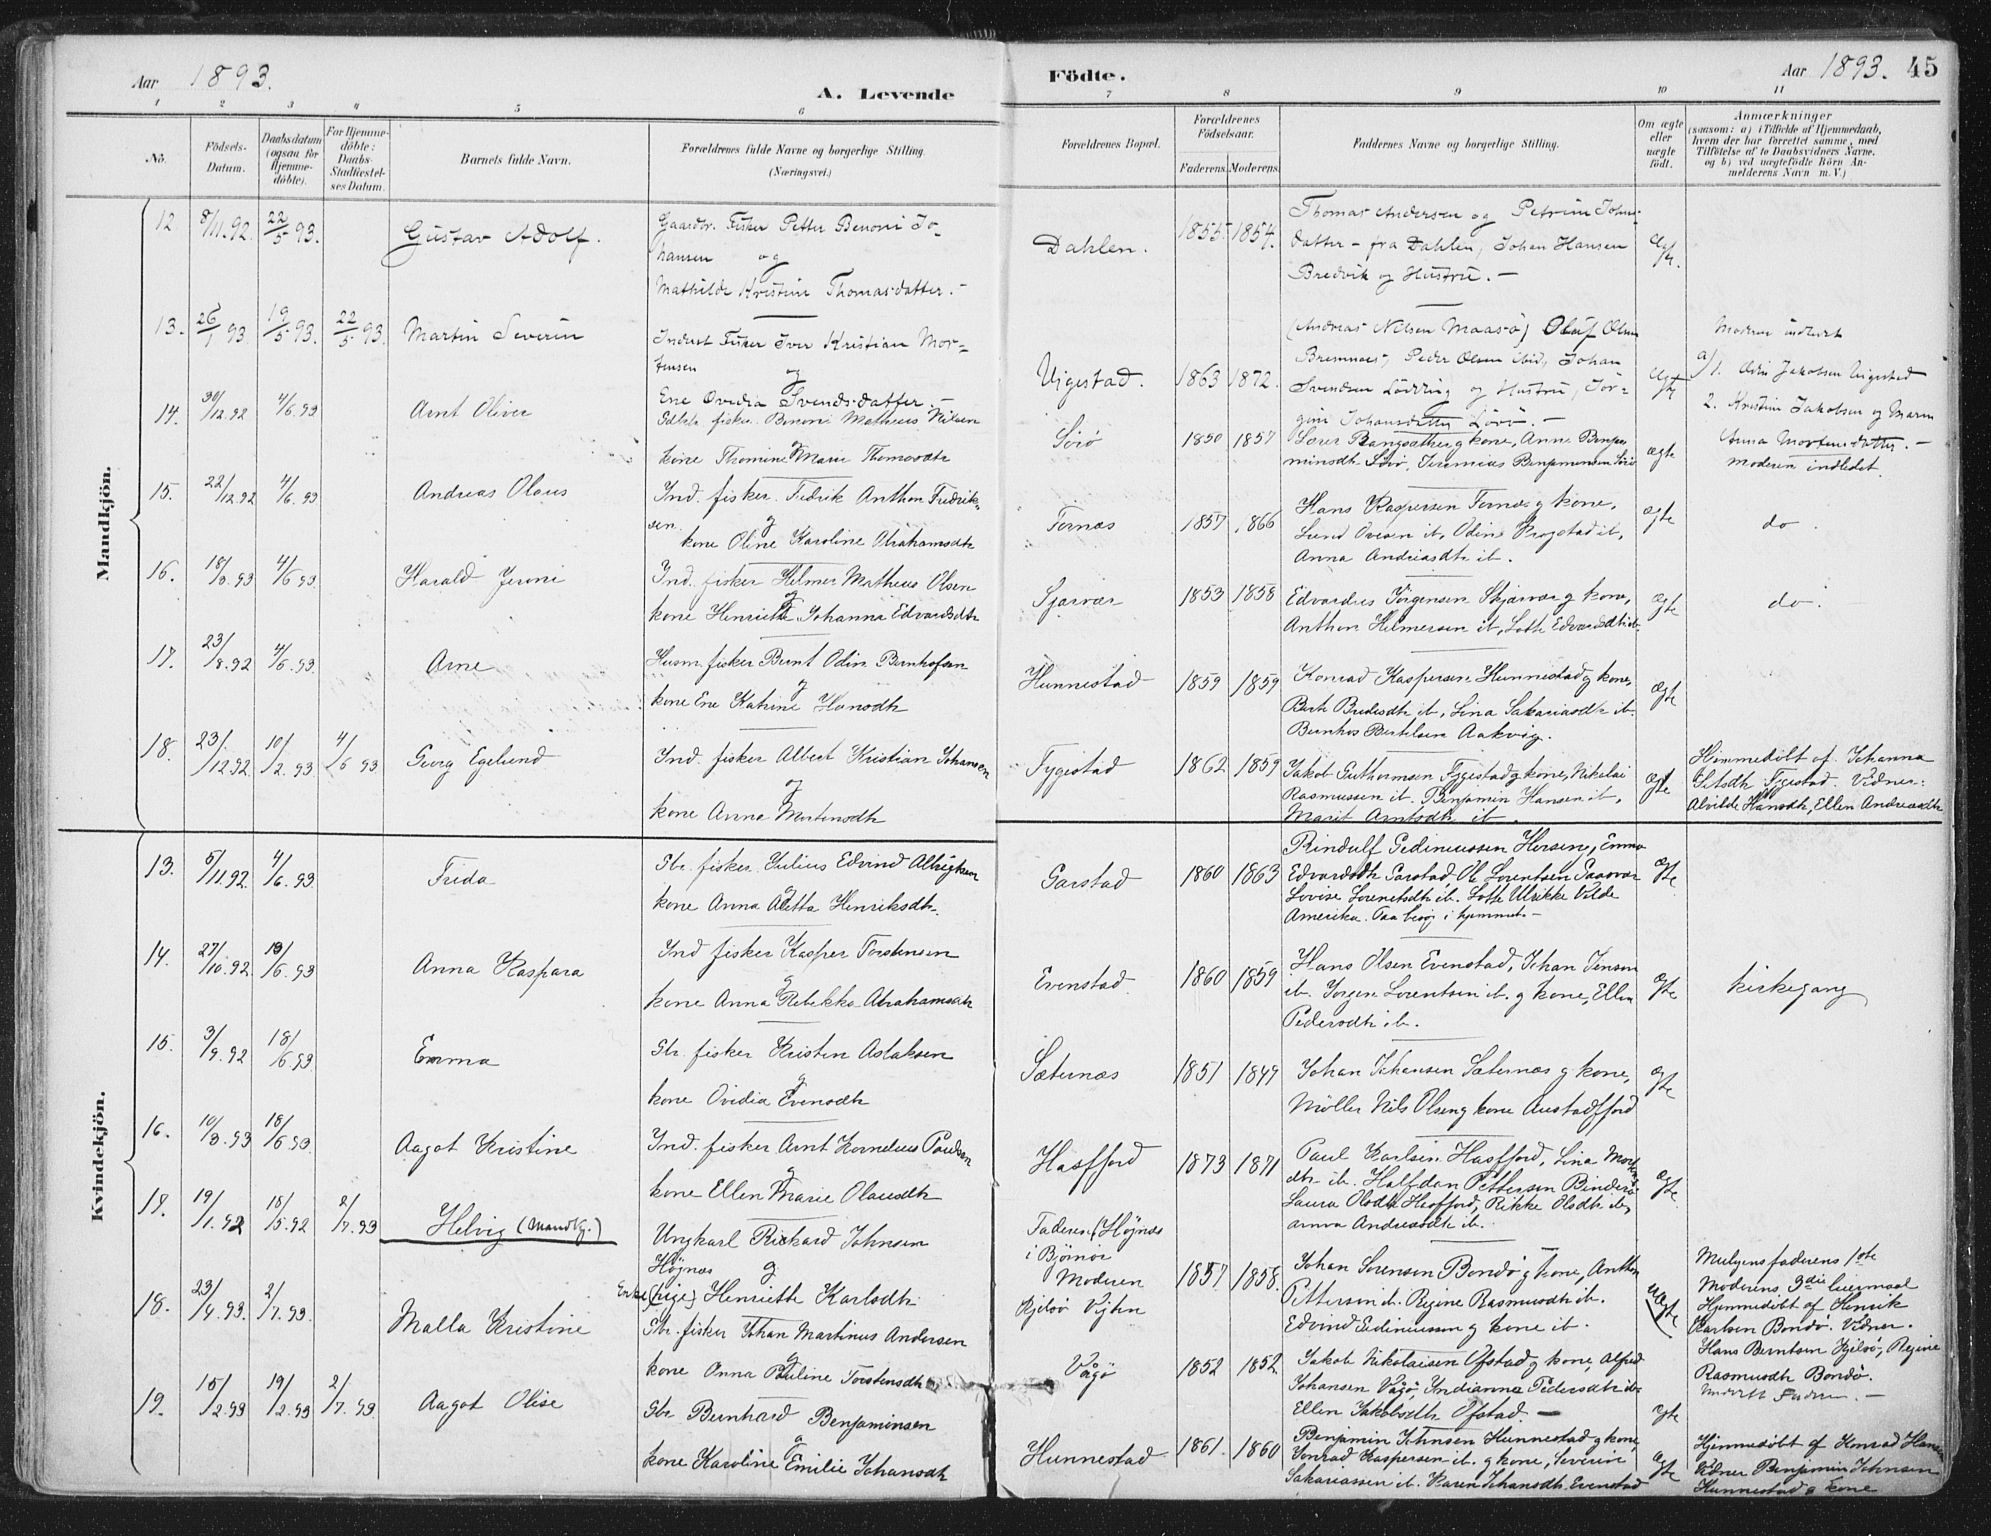 Aar 1893.
A. Levende
Födte.
Aar 1893. 45
1 2 3 4 5 6 7 8 9 10 11
No.
Födsels-Datum.
Daabsdatum (ogsaa for Hjemme-döbte).
For Hjemme-döbte: Daabs-Stadfæstel-ses Datum.
Barnets fulde Navn.
Forældrenes fulde Navne og borgerlige Stilling. (Næringsvei.)
Forældrenes Bopæl.
Forældrenes Födselsaar.
Faderens. Moderens.
Faddernes Navne og borgerlige Stilling.
Om ægte eller uægte födt.
Anmærkninger
(saasom: a) i Tilfælde af Hjemmedaab, hvem der har forrettet samme, med Tilföielse af to Daabsvidners Navne. og b) ved uægtefödte Börn An-melderens Navn m. V.)
Mandkjön.
12 8/11.92. 22/5 93. Gustav Adolf.
Gaardbr. Fisker Petter Benoni Jo-
hansen og
Mathilde Kristine Thomasdatter.
Dahlen. 1855 1854.
Thomas Andersen og Petrine Johns-
datter - fra Dahlen, Johan Hansen
Bredvik og Hustru. -
Ægte.
13. 26/1 93 19/5 93. 22/5 93. Martin Severin
Inderst Fisker Iver Kristian Mor-
tensen og
Ene Ovidia Svendsdatter. -
Vigestad. 1863 1872.
(Andreas Nilsen Maasø) Oluf Olsen
Bremnes, Peder Olsen ibid, Johan
Svendsen Lövring og Hustru, Jör-
gine Johansdatter Lörö. -
Ægte
Moderen indledet
a) 1. Odin Jakobsen Vigestad
2. Kristine Jakobsen og Maren
Anna Mortensdatter. -
14. 30/12.92 4/6.93 Arnt Oliver
fisker Benoni Matheus Nilsen
og
kone Thomine Marie Thomasdtr
Sörö 1850 1857
kone, Anne Benja-
minsdtr Sörö, Jeremias Benjaminsen Sörö
ægte
Moderen indledet.
15. 22/12.92 4/6.93 Andreas Olaus
Ind. fisker. Fredrik Anthon Fredrik-
sen. og
kone Oline Karoline Abrahamsdtr
Ternæs 1857 1866
Hans Kaspersen Ternæs og kone,
Lund Ovesen ib, Odine ib,
Anna Andreasdtr ib.
ægte
do.
16. 18/3.93 4/6.93 Harald Jeroni
Ind. fisker Helmer Matheus Olsen
og
kone Henriette Johanna Edvardsdtr
Sjærvær 1853 1858
Edvardus Jörgensen Skjærvær og kone,
Anthon Helmersen ib, Lotte Edvardsdtr ib
ægte
do.
17. 23/8.92 4/6.93 Arne
Husm. fisker Bernt Odin Bernhofsen
og
kone Ene Katrine Hansdtr
Hunnestad 1859 1859
Konrad Kaspersen Hunnestad og kone,
Berit ib, Lina Sakariasdtr ib.
Bernhof Bertelsen Aakvig.
ægte
18. 23/12.92 10/2.93 4/6 93 Georg Egelund
Ind. fisker Albert Kristian Johansen
og
kone Anna Mortensdtr
Tygestad 1862 1859
Jakob Guthormsen Tygestad og kone, Nikolai
Rasmussen ib. Benjamin Hansen ib,
Marit Arntsdtr ib.
ægte
Hjemmedøbt af Johanna
Tygestad. Vidner:
Alvilde Hansdtr, Ellen Andreasdtr
Kvindekjön.
13. 5/11.92 4/6.93 Frida
Gbr. fisker Julius Edvind Albrigtsen
og
kone Anna Aletta Henriksdtr.
Garstad 1860 1863
Rindulf Pedinussen Horseng, Emma
Edvardsdtr Garstad, Ole Lorentsen Paasvær
Lovise Lorentsdtr ib. Lotte Ulrikke Vilde
Amerika. Paa besög i hjemmet. -
ægte
14. 27/10.92 13/6.93 Anna Kaspara
Ind fisker Kasper Torstensen
og
kone Anna Rebekka Abrahamsdtr
Evenstad 1860 1859
Hans Olsen Evenstad, Johan Jensen
ib. Jörgen Lorentsen ib. og kone, Ellen
Pedersdtr ib.
ægte
kirkegang
15. 3/9.92 18/6.93 Emma
Gbr. fisker Kristen Aslaksen
og
kone Ovidia Evensdtr
Sæternæs 1851 1849
Johan Johansen Sæternæs og kone,
Möller Nils Olsen og kone Austadfjord
ægte
16. 10/3.93 18/6.93 Aagot Kristine
Ind. fisker Arnt Kornelius Paulsen
og
kone Ellen Marie Olausdtr
Hasfjord 1873 1871
Paul Karlsen Hasfjord, Lina
dtr ib. Halfdan Pettersen Binderö
Laura Olsdtr Hasfjord, Rikke Olsdtr ib,
Anna Andreasdtr ib.
ægte.
17. 19/1.92 18/5.92 2/7.93 Helvig (Mandkj.)
Ungkarl Rickard Johnsen
Högnæs og
Enke (pige) Henriette Karlsdtr
Faderen (Högnæs
i Björnör
Moderen
Kjelsö Vigten
1857 1858.
Johan Sörensen Bondö og kone, Anthon
Pettersen ib. Regine Rasmusdtr ib.
Edvind Pedinussen og kone ib.
uægte
Muligens faderens 1ste
Moderens 3die leiermaal
Hjemmedöbt af Henrik
Karlsen Bondö. Vidner.
Hans Berntsen Kjelsö, Regine
Rasmusdtr Bondö.
18. 23/4.93. 2/7.93. Malla Kristine
Gbr. fisker Johan Martinus Andersen
og
kone Anna Pauline Torstensdtr
Vågö 1852 1852
Jakob Nikolaisen Ofstad og kone, Alfred
Johansen Vågö, Indianna Pedersdtr ib
Ellen Jakobsdtr Ofstad. -
ægte
19. 15/2.93 19/2.93 2/7.93 Aagot Olise
Gbr Bernhard Benjaminsen
og
kone Karoline Emilie Johansdtr
Hunnestad 1861. 1860
Benjamin Johnsen Hunnestad og kone,
Konrad Kaspersen ib. og kone, Severin
Sakariassen ib. Karen Johansdtr Evenstad
ægte
Hjemmedöbt af Konrad Hansen
Vidner Benjamin Johnsen
Hunnestad og kone